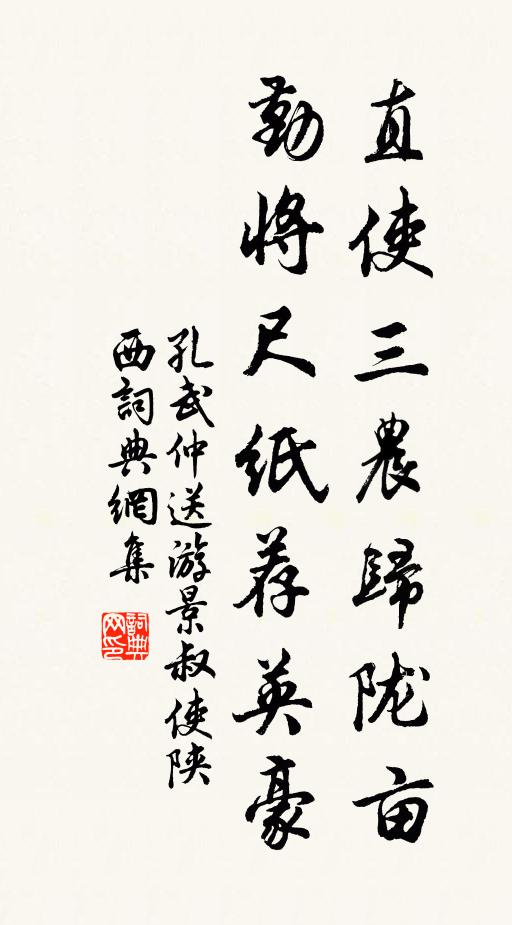 直使三農歸陇亩
勤将尺紙荐英豪
孔武仲送游景叔使陕
西詞典網集
詞典网印